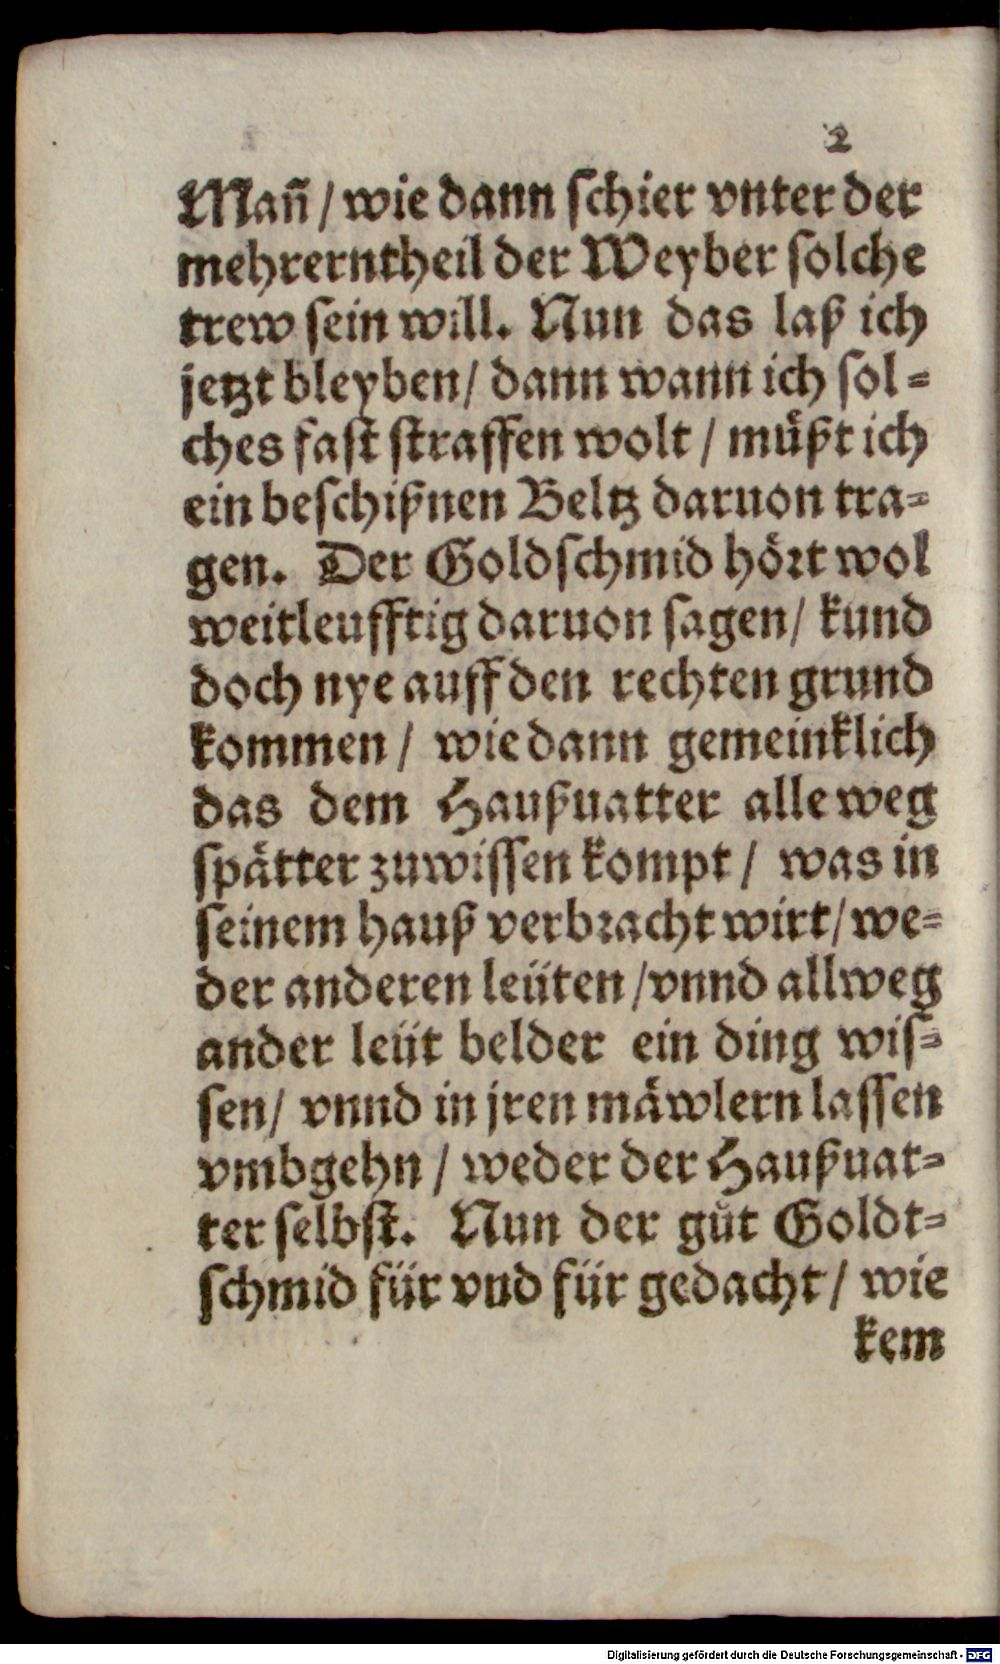 2
Mañ / wie dann schier vnter der
mehrerntheil der Weyber solche
trew sein will. Nun das laß ich
jetzt bleyben / dann wann ich sol=
ches fast straffen wolt / müßt ich
ein beschißnen Beltz daruon tra=
gen. Der Goldschmid hört wol
weitleufftig daruon sagen / kund
doch nye auff den rechten grund
kommen / wie dann gemeinklich
das dem Haußuatter alle weg
spätter zuwissen kompt / was in
seinem hauß verbracht wirt / we=
der anderen leüten / vnnd allweg
ander leüt belder ein ding wis=
sen / vnnd in jren mäwlern lassen
vmbgehn / weder der Haußuat=
ter selbst. Nun der gůt Goldt=
schmid für vnd für gedacht / wie
kem
Digitalisierung gefördert durch die Deutsche Forschungsgemeinschaft - DFG